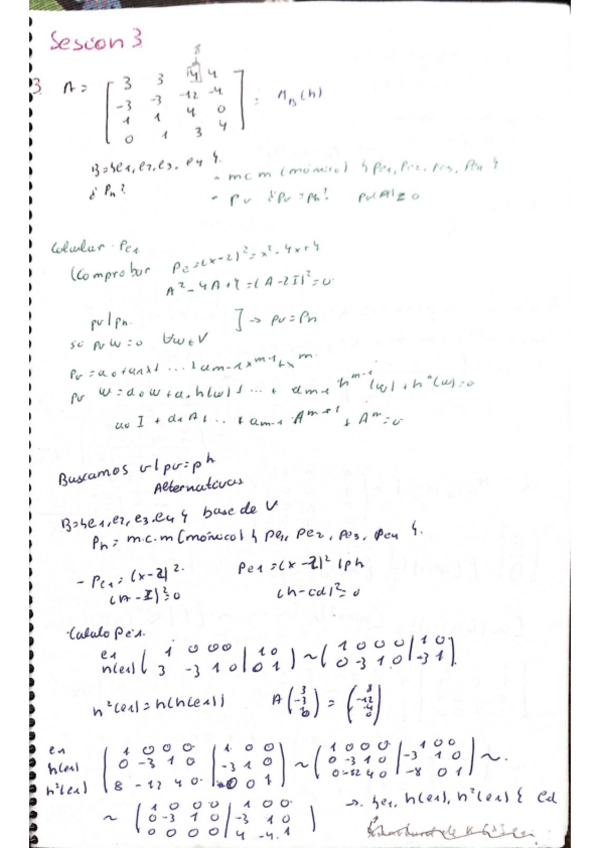 Sesion 3
8
3. A = [ 3 3 4 4
-3 -3 -12 -4
1 1 4 0
0 1 3 4 ] = M_B(h)
B={e1, e2, e3, e4}.
¿ Ph?
- mcm (mónico) {pe1, pe2, pe3, pe4}
- pv ¿Pv = Ph? pv(A)=0
Calcular Pe1
(Comprobar Pe=(x-2)²=x²-4x+4
A²-4A+4=(A-2I)²=0
pv|ph
] → pv=Ph
pv w=0 ∀w∈V
am-1 x^m-1 + x^m
Pv w=a0w+a1h(w)+...+am-1 h^m-1(w)+h^m(w)=0
a0 I + a1 A + ... + am-1 A^m-1 + A^m=0
Buscamos v|pv=ph
Alternativas
B={e1, e2, e3, e4} base de V
Ph = m.c.m (mónico) {pe1, pe2, pe3, pe4}.
- Pe1 = (x-2)². Pe1=(x-2)²|ph
Calculo Pe1.
e1
h(e1) ( 1 0 0 0 | 1 0
3 -3 1 0 | 0 1 ) ~ ( 1 0 0 0 | 1 0
0 -3 1 0 | -3 1 )
h²(e1)=h(h(e1)) A ( 3 -3 1 0 ) = ( 8 -12 4 0 )
e1
h(e1)
h²(e1) ( 1 0 0 0 | 1 0 0
0 -3 1 0 | -3 1 0
8 -12 4 0 | 0 0 1 ) ~ ( 1 0 0 0 | 1 0 0
0 -3 1 0 | -3 1 0
0 -12 4 0 | -8 0 1 ) ~
~ ( 1 0 0 0 | 1 0 0
0 -3 1 0 | -3 1 0
0 0 0 0 | 4 -4 1 )
→ {e1, h(e1), h²(e1)}